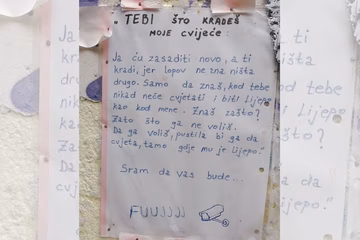 "TEBI ŠTO KRADEŠ
MOJE CVIJEĆE:
Ja ću zasaditi novo, a ti
kradi, jer lopov ne zna ništa
drugo. Samo da znaš, kod tebe
nikad neće cvjetati i biti lijepo
kao kod mene. Znaš zašto?
Zato što ga ne voliš.
Da ga voliš, pustila bi ga da
cvjeta, tamo gdje mu je lijepo."
Sram da vas bude...
FUUJJJJJ